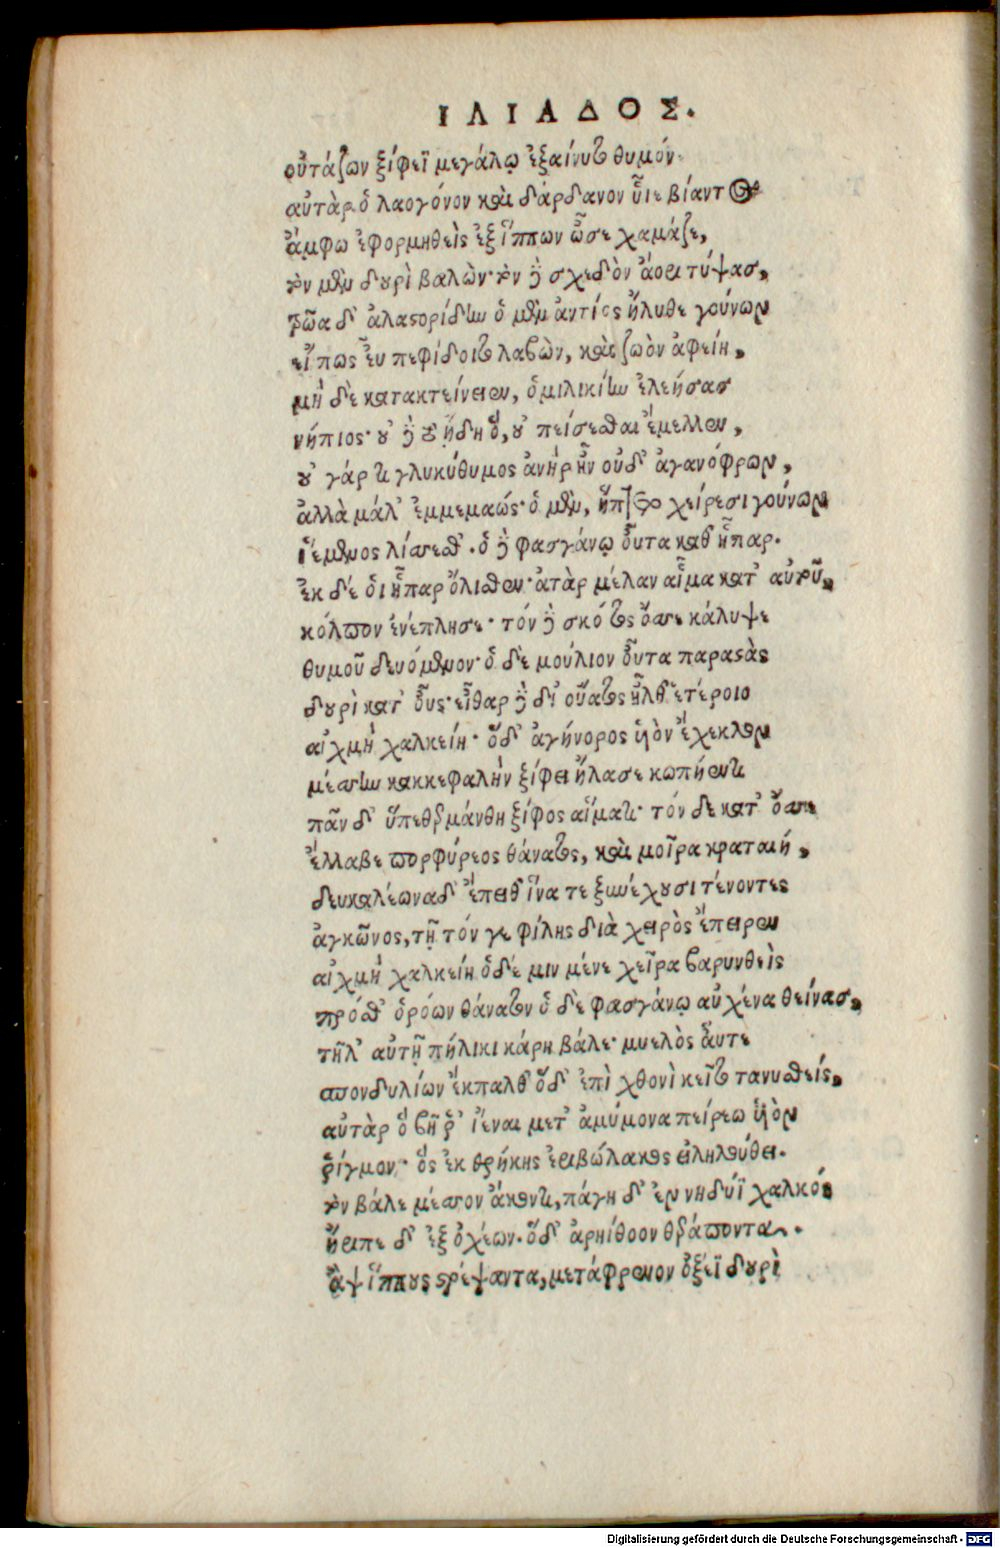 ΙΛΙΑΔΟΣ.
οὐτάζων ξίφεϊ μεγάλῳ ἐξαίνυτο θυμόν·
αὐτὰρ ὁ λαογόνον καὶ δάρδανον ὗιε βίαντος
ἄμφω ἐφορμηθεὶς ἐξ ἵππων ὦσε χαμάζε,
τὸν μὲν δουρὶ βαλὼν· τὸν δὲ σχεδὸν ἄορι τύψας,
τρῶα δ' ἀλαστορίδην ὁ μὲν ἀντίος ἤλυθε γούνων
εἴ πως ἑυ πεφίδοιτο λαβὼν, καὶ ζωὸν ἀφείη,
μὴ δὲ κατακτείνειεν, ὁμιλικίην ἐλεήσας
νήπιος· οὐ δὲ τὸ ᾔδη ὅ, οὐ πείσεσθαι ἔμελλεν,
οὐ γάρ τι γλυκύθυμος ἀνὴρ ἦν οὐδ' ἀγανόφρων,
ἀλλὰ μάλ' ἐμμεμαώς· ὁ μὲν, ἥπτετο χείρεσι γούνων
ἱέμενος λίσσεσθ'. ὁ δὲ φασγάνῳ οὖτα καθ' ἧπαρ.
ἐκ δέ ὁι ἧπαρ ὄλισθεν· ἀτὰρ μέλαν αἷμα κατ' αὐτοῦ,
κόλπον ἐνέπλησε· τόν δὲ σκότος ὄσσε κάλυψε
θυμοῦ δευόμενον· ὁ δὲ μούλιον οὖτα παραστὰς
δουρὶ κατ' οὖς· εἶθαρ δὲ δι' οὔατος ἦλθ' ἑτέροιο
αἰχμὴ χαλκείη· ὅδ' ἀγήνορος ὑὸν ἔχεκλον
μέσσην κακκεφαλὴν ξίφει ἤλασε κωπήεντι
πᾶν δ' ὕπεθερμάνθη ξίφος αἵματι· τόν δε κατ' ὄσσε
ἔλλαβε πορφύρεος θάνατος, καὶ μοῖρα κραταιή,
δευκαλέωνα δ' ἔπειθ' ἵνα τε ξυνέχουσι τένοντες
ἀγκῶνος, τῇ τόν γε φίλης διὰ χειρὸς ἔπειρεν
αἰχμὴ χαλκείη ὁδέ μιν μένε χεῖρα βαρυνθεὶς
πρόσθ' ὁρόων θάνατον ὁ δὲ φασγάνῳ αὐχένα θείνας,
τῆλ' αὐτῇ πήλικι κάρη βάλε· μυελὸς αὖτε
σπονδυλίων ἔκπαλθ' ὅδ' ἐπὶ χθονὶ κεῖτο τανυσθείς,
αὐτὰρ ὁ βῆ ῥ' ἰέναι μετ' ἀμύμονα πείρεω ὑὸν
ῥίγμον· ὅς ἐκ θρήκης ἐριβώλακος εἰληλούθει.
τὸν βάλε μέσσον ἄκοντι, πάγη δ' ἐν νηδύϊ χαλκός
ἤριπε δ' ἐξ ὀχέων. ὅδ' ἀρηίθοον θεράποντα.
ἂψ ἵππους στρέψαντα, μετάφρενον ὀξέϊ δουρὶ
Digitalisierung gefördert durch die Deutsche Forschungsgemeinschaft - DFG